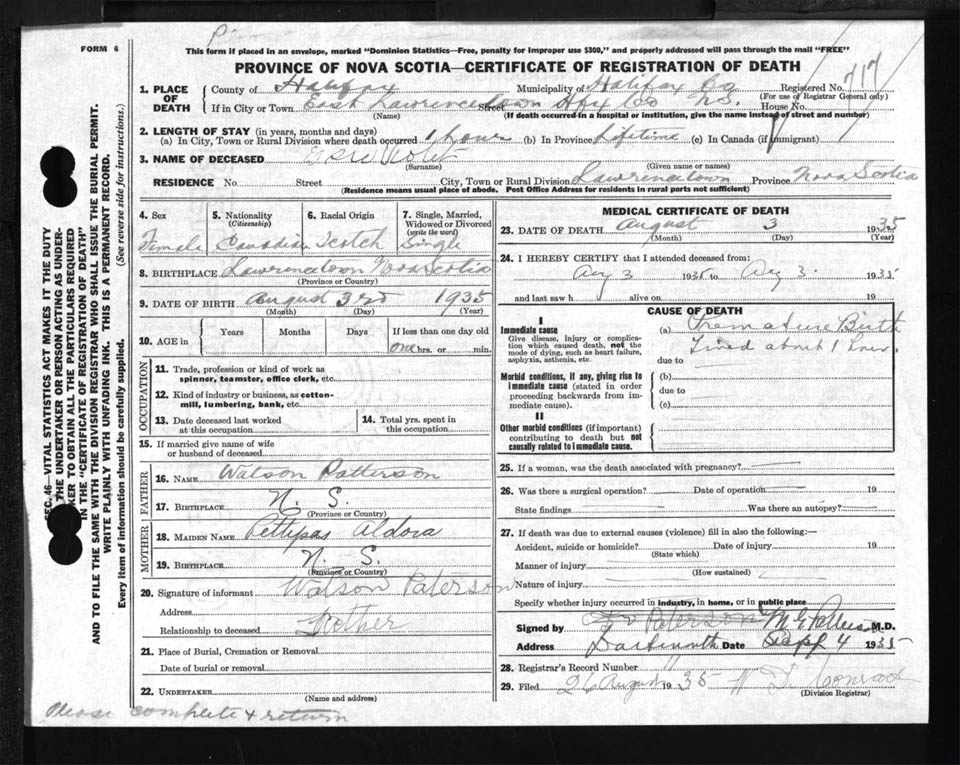 FORM 6
This form if placed in an envelope, marked "Dominion Statistics—Free, penalty for improper use $300," and properly addressed will pass through the mail "FREE"
PROVINCE OF NOVA SCOTIA—CERTIFICATE OF REGISTRATION OF DEATH
1. PLACE OF DEATH
County of Halifax Municipality of Halifax Co Registered No. 717
(For use of Registrar General only)
If in City or Town East Lawrencetown Street Hfx Co N.S. House No.
(Name) (If death occurred in a hospital or institution, give the name instead of street and number)
2. LENGTH OF STAY (in years, months and days)
(a) In City, Town or Rural Division where death occurred 1 hour (b) In Province Lifetime (c) In Canada (if immigrant)
3. NAME OF DECEASED Violet
(Surname) (Given name or names)
RESIDENCE No. Street City, Town or Rural Division Lawrencetown Province Nova Scotia
(Residence means usual place of abode. Post Office Address for residents in rural parts not sufficient)
4. Sex Female
5. Nationality (Citizenship) Canadian
6. Racial Origin Scotch
7. Single, Married, Widowed or Divorced (write the word) Single
8. BIRTHPLACE Lawrencetown Nova Scotia
(Province or Country)
9. DATE OF BIRTH August 3rd 1935
(Month) (Day) (Year)
10. AGE in Years Months Days If less than one day old
one hrs. or min.
OCCUPATION
11. Trade, profession or kind of work as spinner, teamster, office clerk, etc.
12. Kind of industry or business, as cotton-mill, lumbering, bank, etc.
13. Date deceased last worked at this occupation
14. Total yrs. spent in this occupation
15. If married give name of wife or husband of deceased
FATHER
16. NAME Watson Patterson
17. BIRTHPLACE N. S.
(Province or Country)
MOTHER
18. MAIDEN NAME Pettipas Aldora
19. BIRTHPLACE N. S.
(Province or Country)
20. Signature of informant Watson Paterson
Address
Relationship to deceased Father
21. Place of Burial, Cremation or Removal
Date of burial or removal
22. UNDERTAKER
(Name and address)
Please complete & return
MEDICAL CERTIFICATE OF DEATH
23. DATE OF DEATH August 3 1935
(Month) (Day) (Year)
24. I HEREBY CERTIFY that I attended deceased from:
Aug 3 1935 to Aug 3. 1935
and last saw h alive on 19
CAUSE OF DEATH
I
Immediate cause
Give disease, injury or complication which caused death, not the mode of dying, such as heart failure, asphyxia, asthenia, etc.
(a) Premature Birth
Lived about 1 hour.
due to
Morbid conditions, if any, giving rise to immediate cause (stated in order proceeding backwards from immediate cause).
(b)
due to
(c)
II
Other morbid conditions (if important) contributing to death but not causally related to immediate cause.
25. If a woman, was the death associated with pregnancy?
26. Was there a surgical operation? Date of operation 19
State findings Was there an autopsy?
27. If death was due to external causes (violence) fill in also the following:—
Accident, suicide or homicide? Date of injury 19
(State which)
Manner of injury
(How sustained)
Nature of injury
Specify whether injury occurred in industry, in home, or in public place
Signed by M.D.
Address Dartmouth Date Sept 4 1935
28. Registrar's Record Number 11
29. Filed 26 August 1935 Conrad
(Division Registrar)
SEC. 46—VITAL STATISTICS ACT MAKES IT THE DUTY
OF THE UNDERTAKER OR PERSON ACTING AS UNDERTAKER TO OBTAIN ALL THE PARTICULARS REQUIRED
IN THE "CERTIFICATE OF REGISTRATION OF DEATH"
AND TO FILE THE SAME WITH THE DIVISION REGISTRAR WHO SHALL ISSUE THE BURIAL PERMIT.
WRITE PLAINLY WITH UNFADING INK. THIS IS A PERMANENT RECORD.
Every item of information should be carefully supplied. (See reverse side for instructions.)